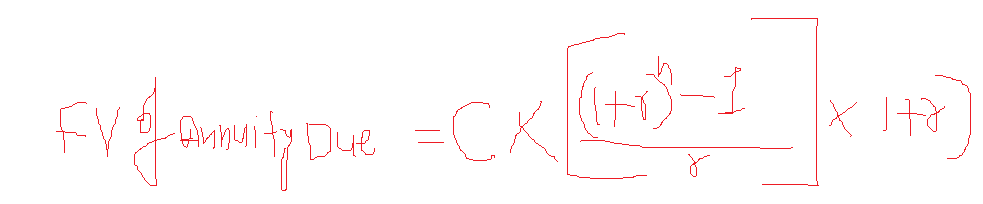 FV of Annuity Due = C X [((1+r)^n - 1) / r] X 1+r)